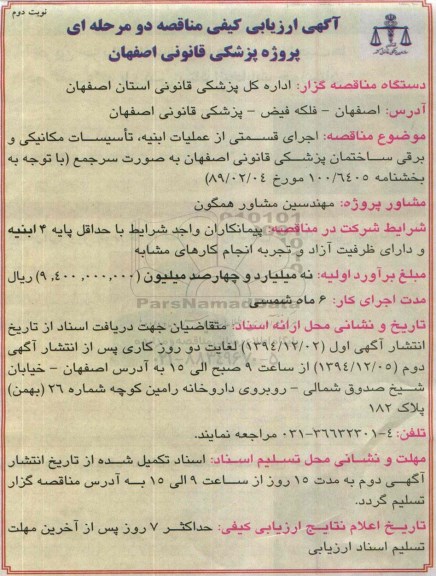 نوبت دوم
آگهی ارزیابی کیفی مناقصه دو مرحله ای
پروژه پزشکی قانونی اصفهان
دستگاه مناقصه گزار: اداره کل پزشکی قانونی استان اصفهان
آدرس: اصفهان - فلکه فیض - پزشکی قانونی اصفهان
موضوع مناقصه: اجرای قسمتی از عملیات ابنیه، تأسیسات مکانیکی و
برقی ساختمان پزشکی قانونی اصفهان به صورت سرجمع (با توجه به
بخشنامه ۱۰۰/۶۴۰۵ مورخ ۸۹/۰۲/۰۴)
مشاور پروژه: مهندسین مشاور همگون
شرایط شرکت در مناقصه: پیمانکاران واجد شرایط با حداقل پایه ۴ ابنیه
و دارای ظرفیت آزاد و تجربه انجام کارهای مشابه
مبلغ برآورد اولیه: نه میلیارد و چهارصد میلیون (۹,۴۰۰,۰۰۰,۰۰۰) ریال
مدت اجرای کار: ۶ ماه شمسی
ParsNamadData
تاریخ و نشانی محل ارائه اسناد: متقاضیان جهت دریافت اسناد از تاریخ
انتشار آگهی اول (۱۳۹۴/۱۲/۰۲) لغایت دو روز کاری پس از انتشار آگهی
دوم (۱۳۹۴/۱۲/۰۵) از ساعت ۹ صبح الی ۱۵ به آدرس اصفهان - خیابان
شیخ صدوق شمالی - روبروی داروخانه رامین کوچه شماره ۲۶ (بهمن)
پلاک ۱۸۲
تلفن: ۴-۳۶۶۳۲۳۰۱-۰۳۱ مراجعه نمایند.
مهلت و نشانی محل تسلیم اسناد: اسناد تکمیل شده از تاریخ انتشار
آگهی دوم به مدت ۱۵ روز از ساعت ۹ الی ۱۵ به آدرس مناقصه گزار
تسلیم گردد.
تاریخ اعلام نتایج ارزیابی کیفی: حداکثر ۷ روز پس از آخرین مهلت
تسلیم اسناد ارزیابی